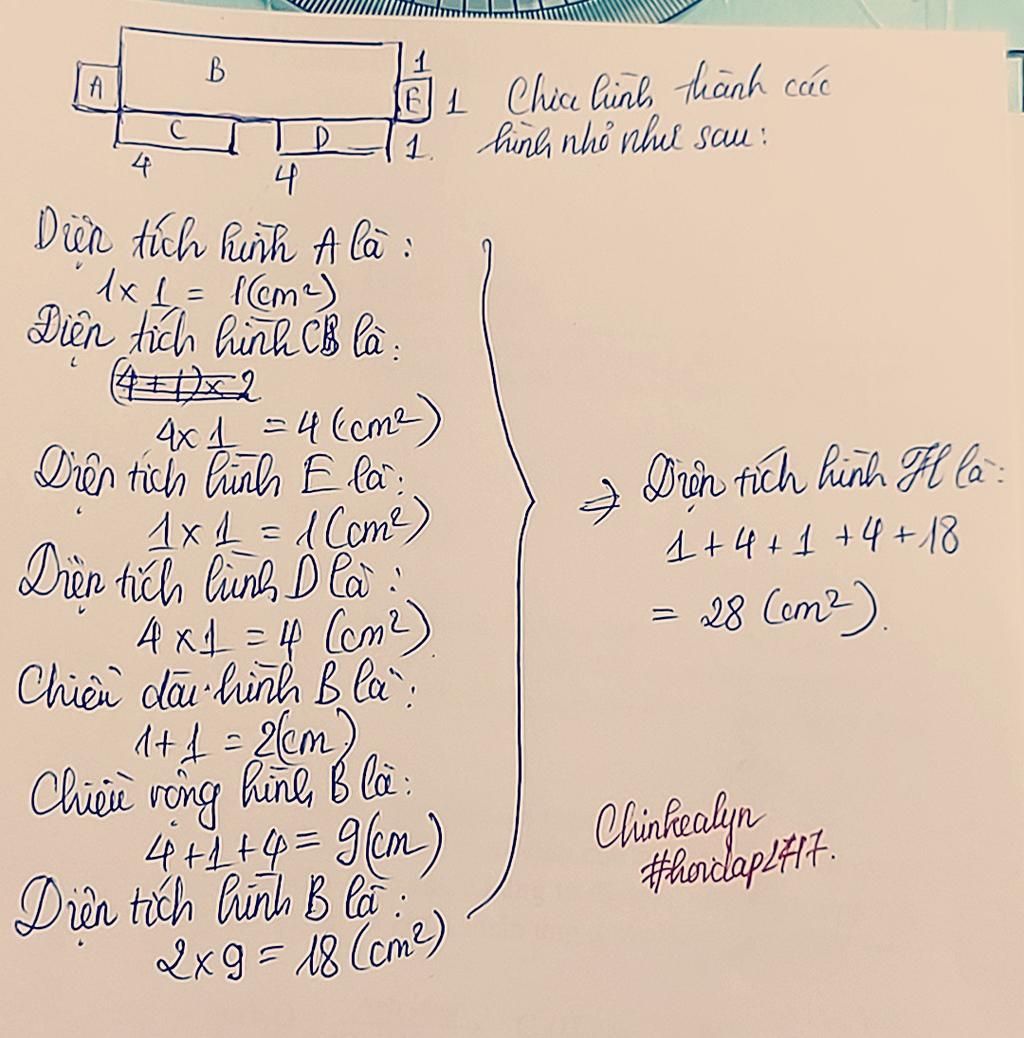 A
B
1
E
1
C
D
1.
4
4
Chia hình thành các
hình nhỏ như sau:
Diện tích hình A là:
1x1 = 1(cm²)
Diện tích hình C là:
(4+1)x2
4x1 = 4(cm²)
Diện tích hình E là:
1x1 = 1(cm²)
Diện tích hình D là:
4x1 = 4 (cm²)
Chiều dài hình B là:
1+1 = 2(cm)
Chiều rộng hình B là:
4+1+4= 9(cm)
Diện tích hình B là:
2x9 = 18 (cm²)
⇒ Diện tích hình H là:
1+4+1+4+18
= 28 (cm²).
Chinkealyn
#hoidap247.